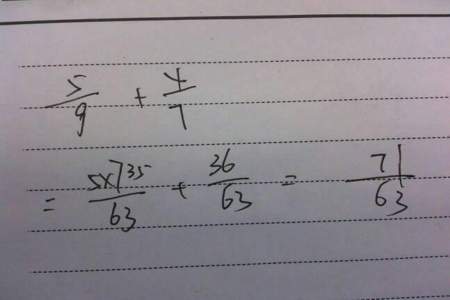 5/9 + 4/7
= 5x7 35/63 + 36/63 = 71/63